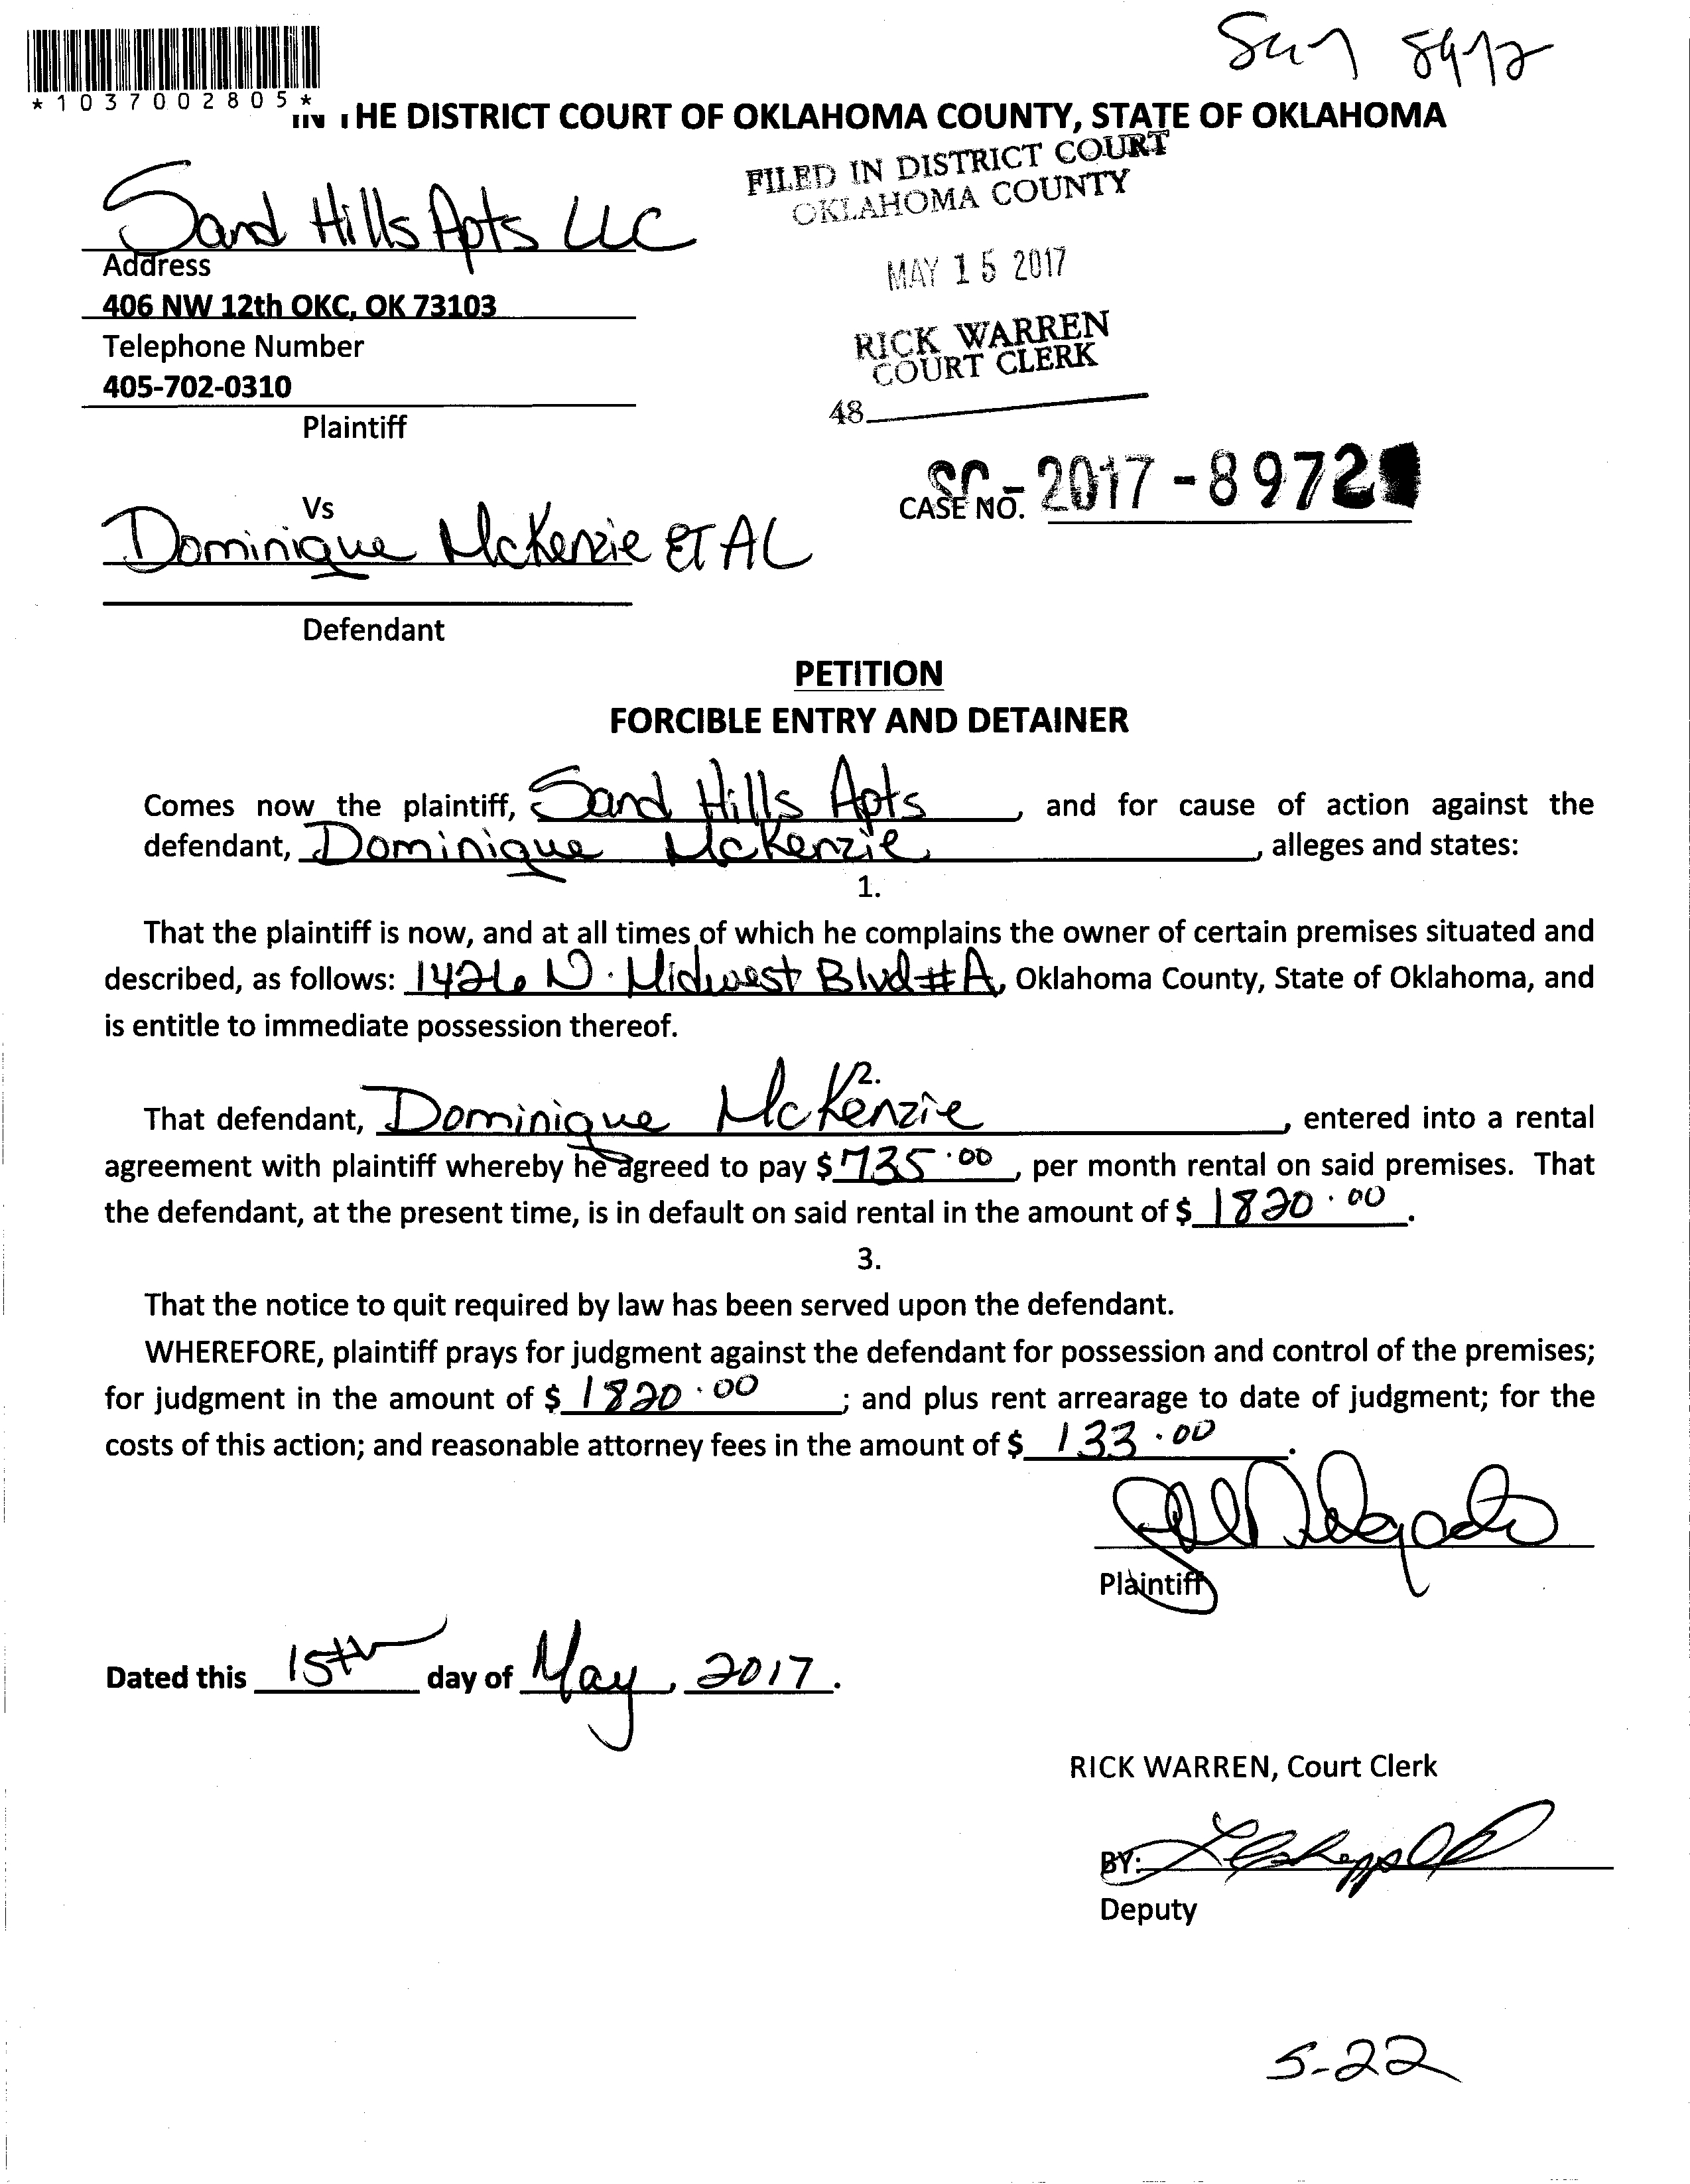 *1037002805*
IN THE DISTRICT COURT OF OKLAHOMA COUNTY, STATE OF OKLAHOMA
FILED IN DISTRICT COURT
OKLAHOMA COUNTY
MAY 15 2017
RICK WARREN
COURT CLERK
48
Sand Hills Apts LLC
Address
406 NW 12th OKC, OK 73103
Telephone Number
405-702-0310
Plaintiff
CASE NO. SC-2017-8972
Vs
Dominique McKenzie ET AL
Defendant
PETITION
FORCIBLE ENTRY AND DETAINER
Comes now the plaintiff, Sand Hills Apts, and for cause of action against the
defendant, Dominique McKenzie, alleges and states:
1.
That the plaintiff is now, and at all times of which he complains the owner of certain premises situated and
described, as follows: 1426 N. Midwest Blvd #A, Oklahoma County, State of Oklahoma, and
is entitle to immediate possession thereof.
2.
That defendant, Dominique McKenzie, entered into a rental
agreement with plaintiff whereby he agreed to pay $ 735.00, per month rental on said premises. That
the defendant, at the present time, is in default on said rental in the amount of $ 1820.00.
3.
That the notice to quit required by law has been served upon the defendant.
WHEREFORE, plaintiff prays for judgment against the defendant for possession and control of the premises;
for judgment in the amount of $ 1820.00; and plus rent arrearage to date of judgment; for the
costs of this action; and reasonable attorney fees in the amount of $ 133.00.
Plaintiff
Dated this 15th day of May, 2017.
RICK WARREN, Court Clerk
BY:
Deputy
5-22